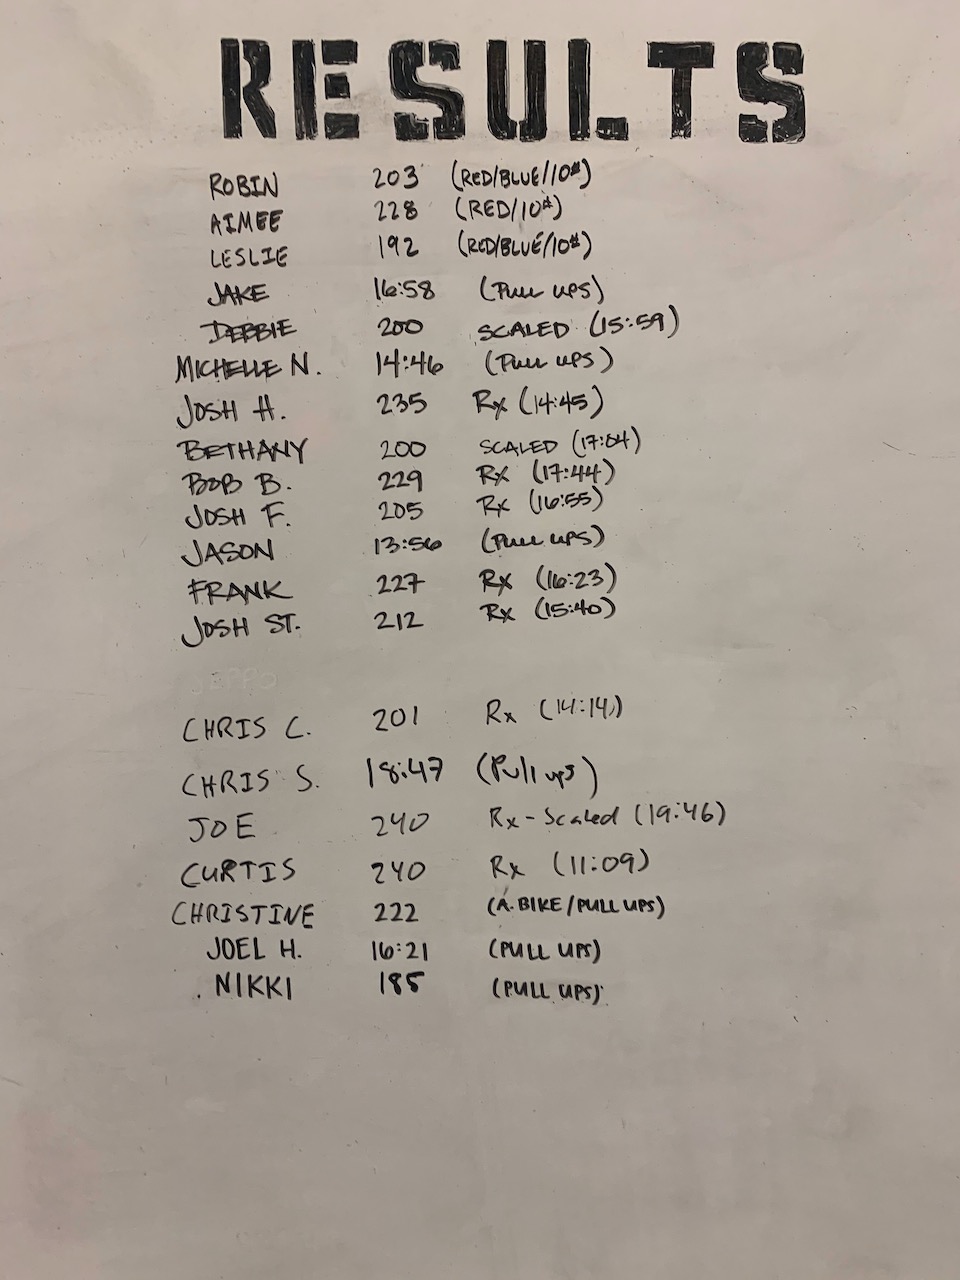 RESULTS
ROBIN 203 (RED/BLUE/10#)
AIMEE 228 (RED/10#)
LESLIE 192 (RED/BLUE/10#)
JAKE 16:58 (PULL UPS)
DEBBIE 200 SCALED (15:59)
MICHELLE N. 14:46 (PULL UPS)
JOSH H. 235 Rx (14:45)
BETHANY 200 SCALED (17:04)
BOB B. 229 Rx (17:44)
JOSH F. 205 Rx (16:55)
JASON 13:56 (PULL UPS)
FRANK 227 Rx (16:23)
JOSH ST. 212 Rx (15:40)
CHRIS C. 201 Rx (14:14)
CHRIS S. 18:47 (Pull ups)
JOE 240 Rx-Scaled (19:46)
CURTIS 240 Rx (11:09)
CHRISTINE 222 (A.BIKE/PULL UPS)
JOEL H. 16:21 (PULL UPS)
NIKKI 185 (PULL UPS)